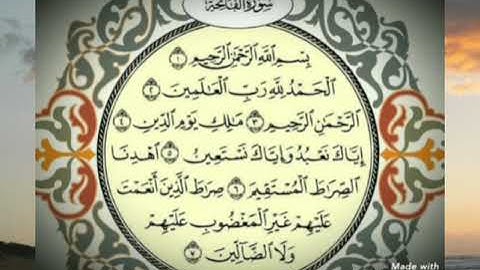 سُورَةُ الفَاتِحَةِ
بِسْمِ ٱللَّهِ ٱلرَّحْمَٰنِ ٱلرَّحِيمِ ١
ٱلْحَمْدُ لِلَّهِ رَبِّ ٱلْعَٰلَمِينَ ٢
ٱلرَّحْمَٰنِ ٱلرَّحِيمِ ٣ مَٰلِكِ يَوْمِ ٱلدِّينِ ٤
إِيَّاكَ نَعْبُدُ وَإِيَّاكَ نَسْتَعِينُ ٥ ٱهْدِنَا
ٱلصِّرَٰطَ ٱلْمُسْتَقِيمَ ٦ صِرَٰطَ ٱلَّذِينَ أَنْعَمْتَ
عَلَيْهِمْ غَيْرِ ٱلْمَغْضُوبِ عَلَيْهِمْ
وَلَا ٱلضَّآلِّينَ ٧
Made with